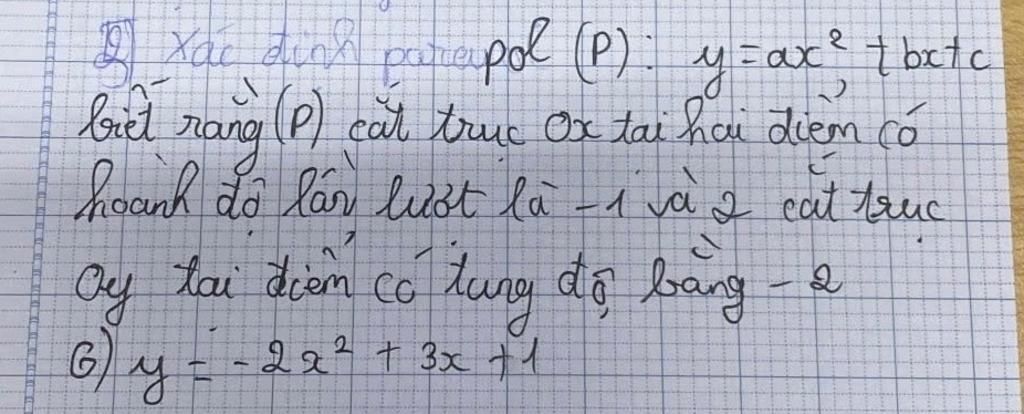 Xác định parapol (P): y = ax² + bx + c
biết rằng (P) cắt trục Ox tại hai điểm có
hoành độ lần lượt là -1 và 2 cắt trục
Oy tại điểm có tung độ bằng -2
6) y = -2x² + 3x + 1